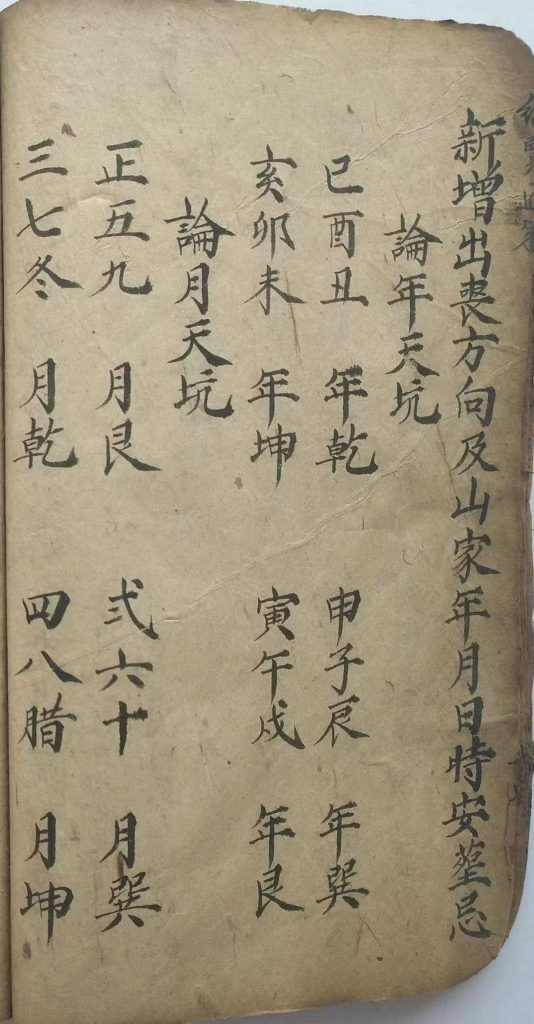 新增出喪方向及山家年月日時安塟忌
論年天坑
巳酉丑 年乾 申子辰 年巽
亥卯未 年坤 寅午戌 年艮
論月天坑
正五九 月艮 弍六十 月巽
三七冬 月乾 四八腊 月坤